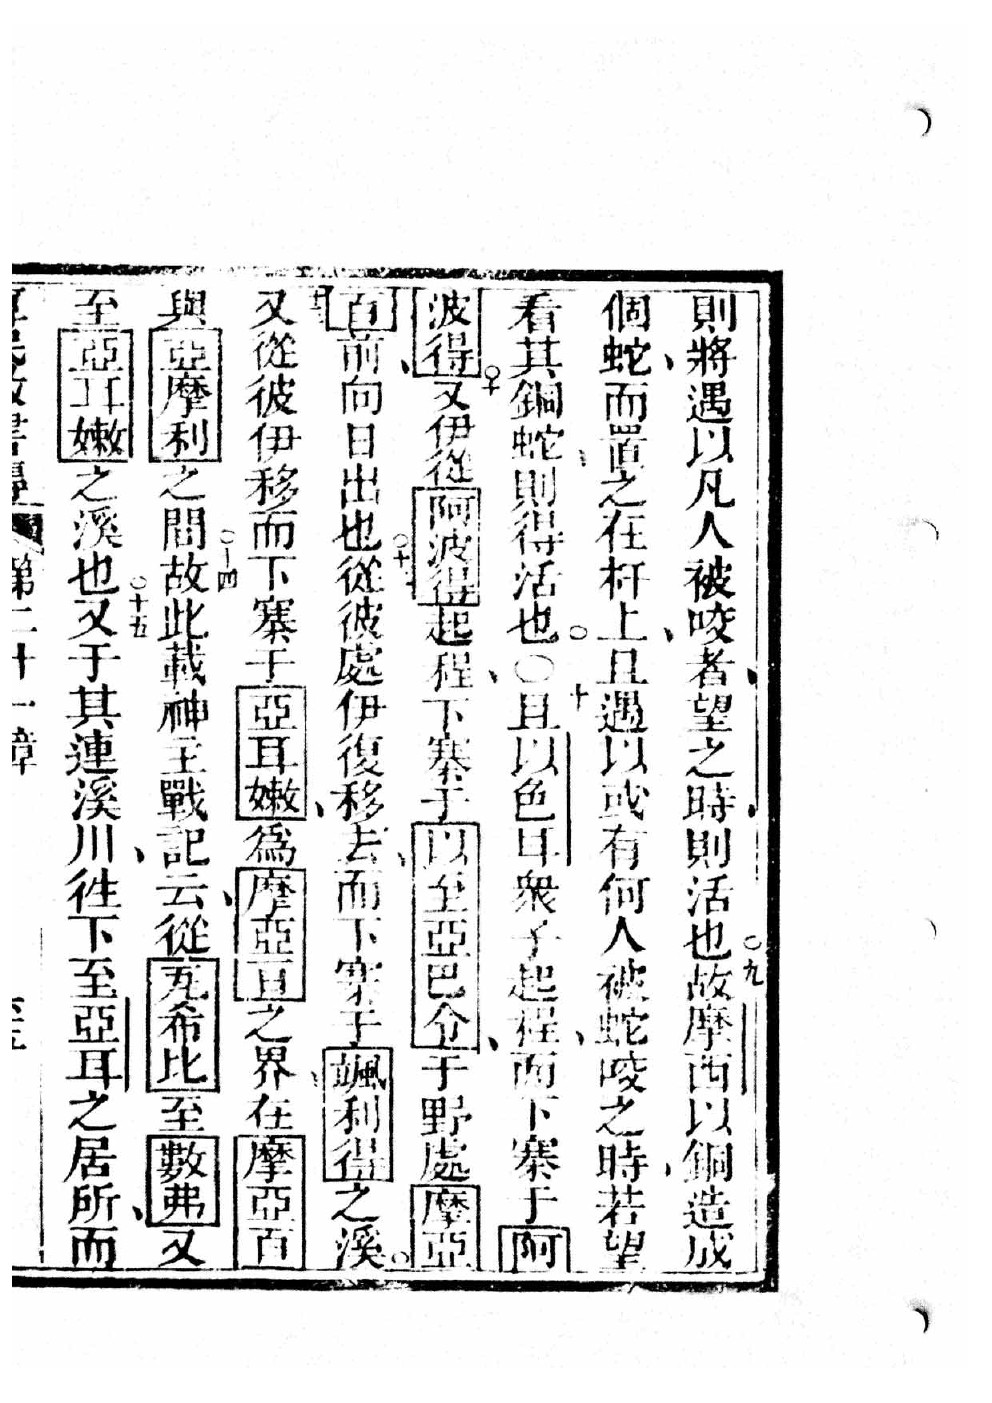 則將遇以凡人被咬者望之時則活也○九故摩西以銅造成
個蛇而置之在杆上且遇以或有何人被蛇咬之時若望
看其銅蛇則得活也○○十且以色耳衆子起程而下寨于阿
波得○十又伊從阿波得起程下寨于以至亞巴令于野處摩亞
百前向日出也○十從彼處伊復移去而下寨于諷利得之溪○
十又從彼伊移而下寨于亞耳嫩爲摩亞亘之界在摩亞百
與亞摩利之間○十四故此載神主戰記云從瓦希比至數弗又
至亞耳嫩之溪也○十五又于其連溪川徃下至亞耳之居所而
書 第二十一章